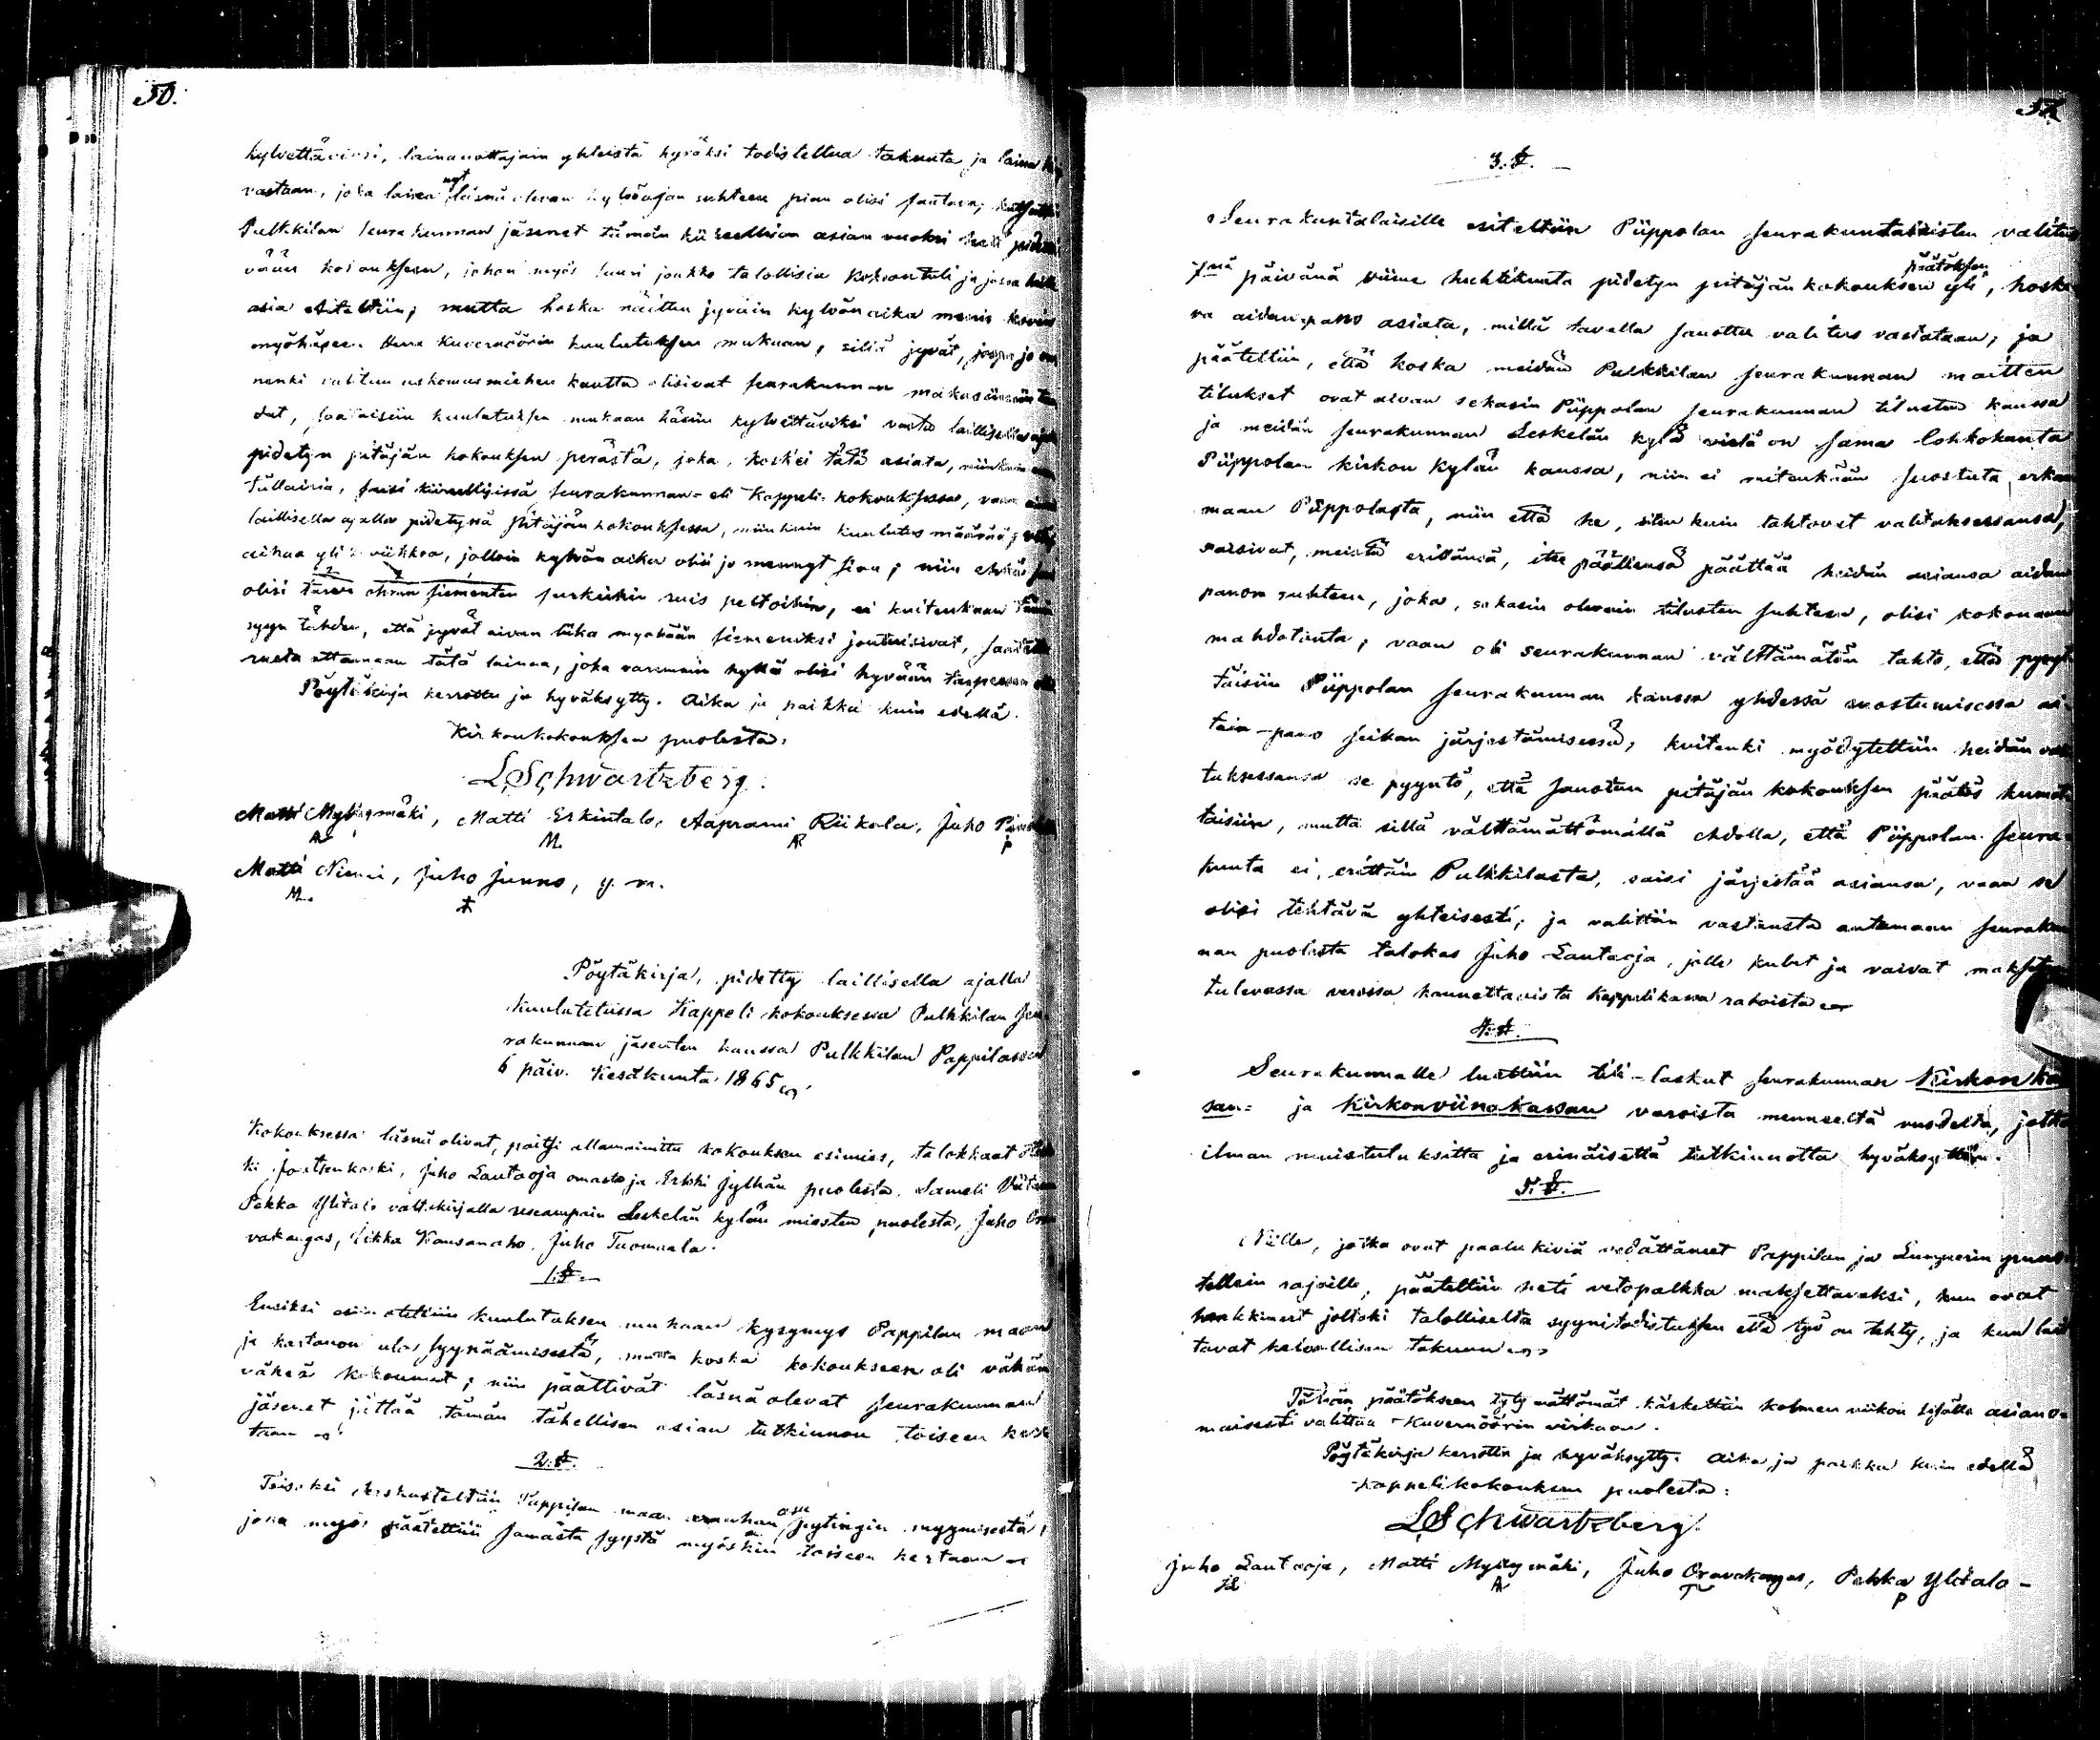 50.
kylvettäviksi, lainanottajain yhteistä hyväksi todisteltua takuuta ja laina
vastaan, joka laina nyt läsnä olevan kylvöajan suhteen pian olisi saatava;
Pulkkilan seurakunnan jäsenet tämän kiireellisen asian vuoksi heti
vään kokoukseen, johon myös suuri joukko talollisia kokoontuli ja jossa
asia esiteltiin; mutta koska näitten jyväin kylvön aika menis
myöhäseen Herra Kuvernöörin kuulutuksen mukaan, sillä jyvät, jospa jo
nenki valitun uskomusmiehen kautta olisivat seurakunnan makasiiniin
dut, saataisiin kuulutuksen mukaan käsiin kylvettäviksi vasta laillisella
pidetyn pitäjän kokouksen perästä, joka, koskei tätä asiata, niinkuin
tällaisia, saisi kiireellisissä seurakunnan- eli Kappeli-kokouksessa, vaan
laillisella ajalla pidetyssä pitäjän kokouksessa, niinkuin kuulutus määrää,
aikaa yli viikkoa, jolloin kylvön aika olisi jo mennyt sivu; niin
olisi tarve ohran siementen ruis peltoihin, ei kuitenkaan
syyn tähden, että jyvät aivan liika myöhään siemeniksi joutuisivat,
ruveta ottamaan tätä lainaa, joka varemmin kyllä olisi hyvään tarpeeseen
Pöytäkirja kerrottu ja hyväksytty. Aika ja paikka kuin edellä.
Kirkonkokouksen puolesta:
L. Schwartzberg.
Matti Myllymäki, Matti Erkintalo, Aaprami Riikola, Juho
M.
Matti Niemi, Juho Junno, y. m.
M.
Pöytäkirja, pidetty laillisella ajalla
kuulutetussa Kappeli kokouksessa Pulkkilan Seu-
rakunnan jäsenten kanssa Pulkkilan Pappilassa
6 päiv. Kesäkuuta 1865
Kokouksessa läsnä olivat, paitsi allamainittu kokouksen esimies, talokkaat
ki Joutsenkoski, Juho Lautaoja omasta ja Erkki Jylhän puolesta, Sameli
Pekka Ylitalo valtakirjalla useampain Leskelän kylän miesten puolesta, Juho Ora
vakangas, Heikki Kansanaho, Juho Tuomaala.
1. §.
Ensiksi esiin otettiin kuulutuksen mukaan kysymys Pappilan maan
ja kartanon ulos syynäämisestä, mutta koska kokoukseen oli vähän
väkeä kokounnut; niin päättivät läsnä olevat seurakunnan
jäsenet jättää tämän tähellisen asian tutkinnon toiseen ker
taan
2. §.
Toiseksi keskusteltiin Pappilan maan vanhan asu pytingin myymisestä,
joka myös päätettiin samasta syystä myöskin toiseen kertaan
51.
3. §.
Seurakuntalaisille esiteltiin Piippolan seurakuntalaisten valitus
7nä päivänä viime huhtikuuta pidetyn pitäjän kokouksen päätöksen yli, koske
va aidanpano asiata, millä tavalla sanottu valitus vastataan; ja
päätettiin, että koska meidän Pulkkilan seurakunnan maitten
tilukset ovat aivan sekasin Piippolan seurakunnan tilusten kanssa
ja meidän seurakunnan Leskelän kylä vielä on sama lohkokunta
Piippolan kirkon kylän kanssa, niin ei mitenkään suostuta erka
maan Piippolasta, niin että he, siten kuin tahtovat valituksessansa,
saisivat, meistä erittänsä, itse päällensä päättää heidän asiansa aidan
panon suhteen, joka, sekasin olevain tilusten suhteen, olisi kokonaan
mahdotonta; vaan oli seurakunnan välttämätön tahto, että pysyt
täisiin Piippolan seurakunnan kanssa yhdessä suostumisessa ai
tain-pano seikan järjestämisessä, kuitenki myödytettiin heidän vali
tuksessansa se pyyntö, että sanotun pitäjän kokouksen päätös kumot
taisiin, mutta sillä välttämättömällä ehdolla, että Piippolan seura-
kunta ei, erittäin Pulkkilasta, saisi järjestää asiansa, vaan se
olisi tehtävä yhteisesti; ja valittiin vastausta antamaan seurakun
nan puolesta talokas Juho Lautaoja, jolle kulut ja vaivat maksetaan
tulevassa verossa kannettavista Kappelikassa rahoista
4. §.
Seurakunnalle luettiin tili-laskut seurakunnan Kirkon kas
san- ja Kirkonviinakassan varoista menneeltä vuodelta, jotka
ilman muistutuksitta ja erinäisettä tutkinnotta hyväksyttiin.
5. §.
Niille, jotka ovat paalu kiviä vedättäneet Pappilan ja Lumperin
tellein rajoille, päätettiin heti vetopalkka maksettavaksi, kun ovat
hankkineet joltaki talolliselta syynitodistuksen että työ on tehty, ja kun
tavat kelvollisen takuun
Tähän päätökseen tyytymättömät käskettiin kolmen viikon sisällä asiano-
maisesti valittaa Kuvernöörin virkaan.
Pöytäkirja kerrottu ja hyväksytty. Aika ja paikka kuin edellä
Kappelikokouksen puolesta:
L. Schwartzberg.
Juho Lautaoja, Matti Myllymäki, Juho Oravakangas, Pekka Ylitalo-